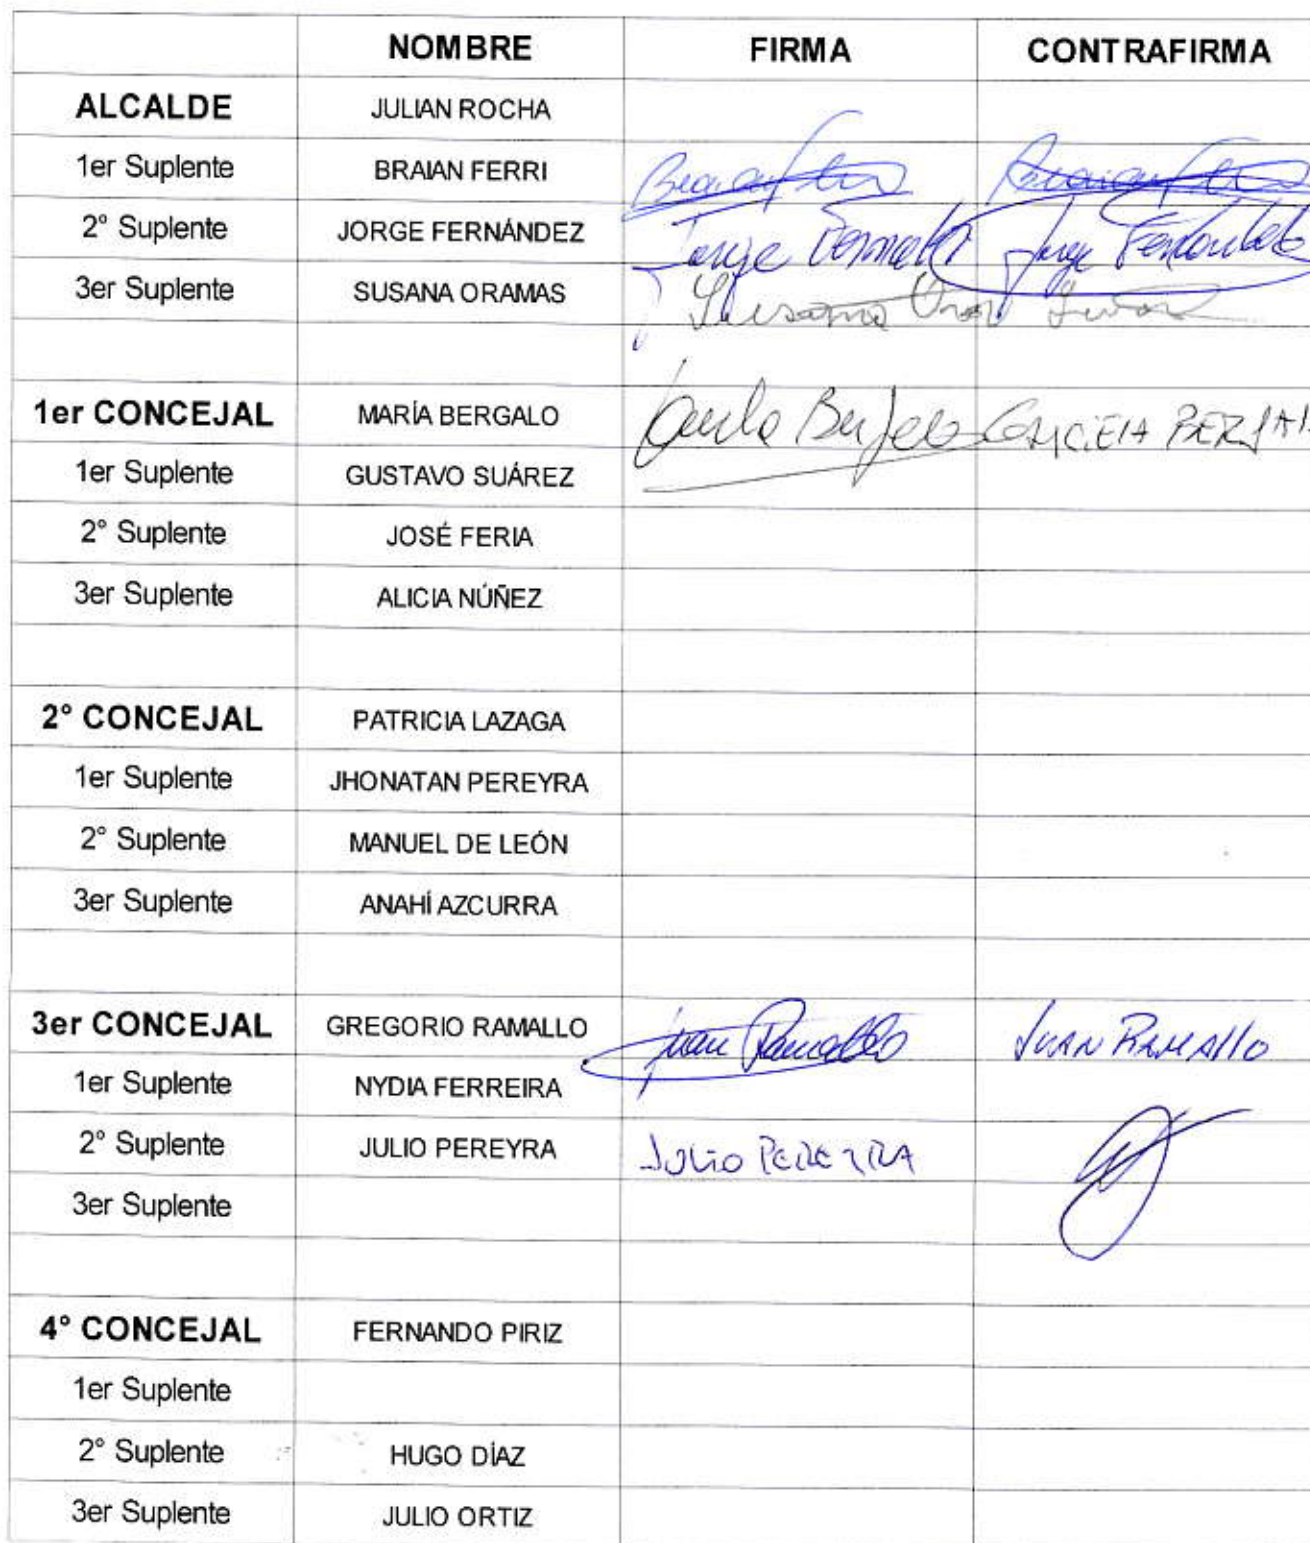 NOMBRE FIRMA CONTRAFIRMA
ALCALDE JULIAN ROCHA
1er Suplente BRAIAN FERRI
2° Suplente JORGE FERNÁNDEZ Jorge Jorge
3er Suplente SUSANA ORAMAS Susana
1er CONCEJAL MARÍA BERGALO
1er Suplente GUSTAVO SUÁREZ
2° Suplente JOSÉ FERIA
3er Suplente ALICIA NÚÑEZ
2° CONCEJAL PATRICIA LAZAGA
1er Suplente JHONATAN PEREYRA
2° Suplente MANUEL DE LEÓN
3er Suplente ANAHÍ AZCURRA
3er CONCEJAL GREGORIO RAMALLO Juan Ramallo JUAN RAMALLO
1er Suplente NYDIA FERREIRA
2° Suplente JULIO PEREYRA JULIO PEREYRA
3er Suplente
4° CONCEJAL FERNANDO PIRIZ
1er Suplente
2° Suplente HUGO DÍAZ
3er Suplente JULIO ORTIZ